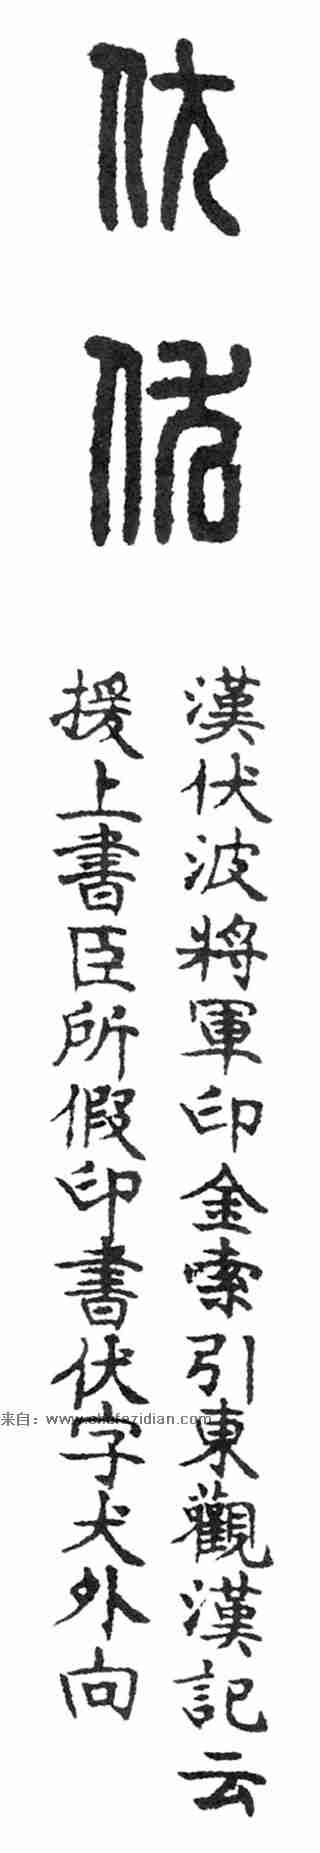 伏
漢伏波將軍印金嗦引東觀漢記云
援上書臣所假印書伏字犬外向
来自：www.shufazidian.com